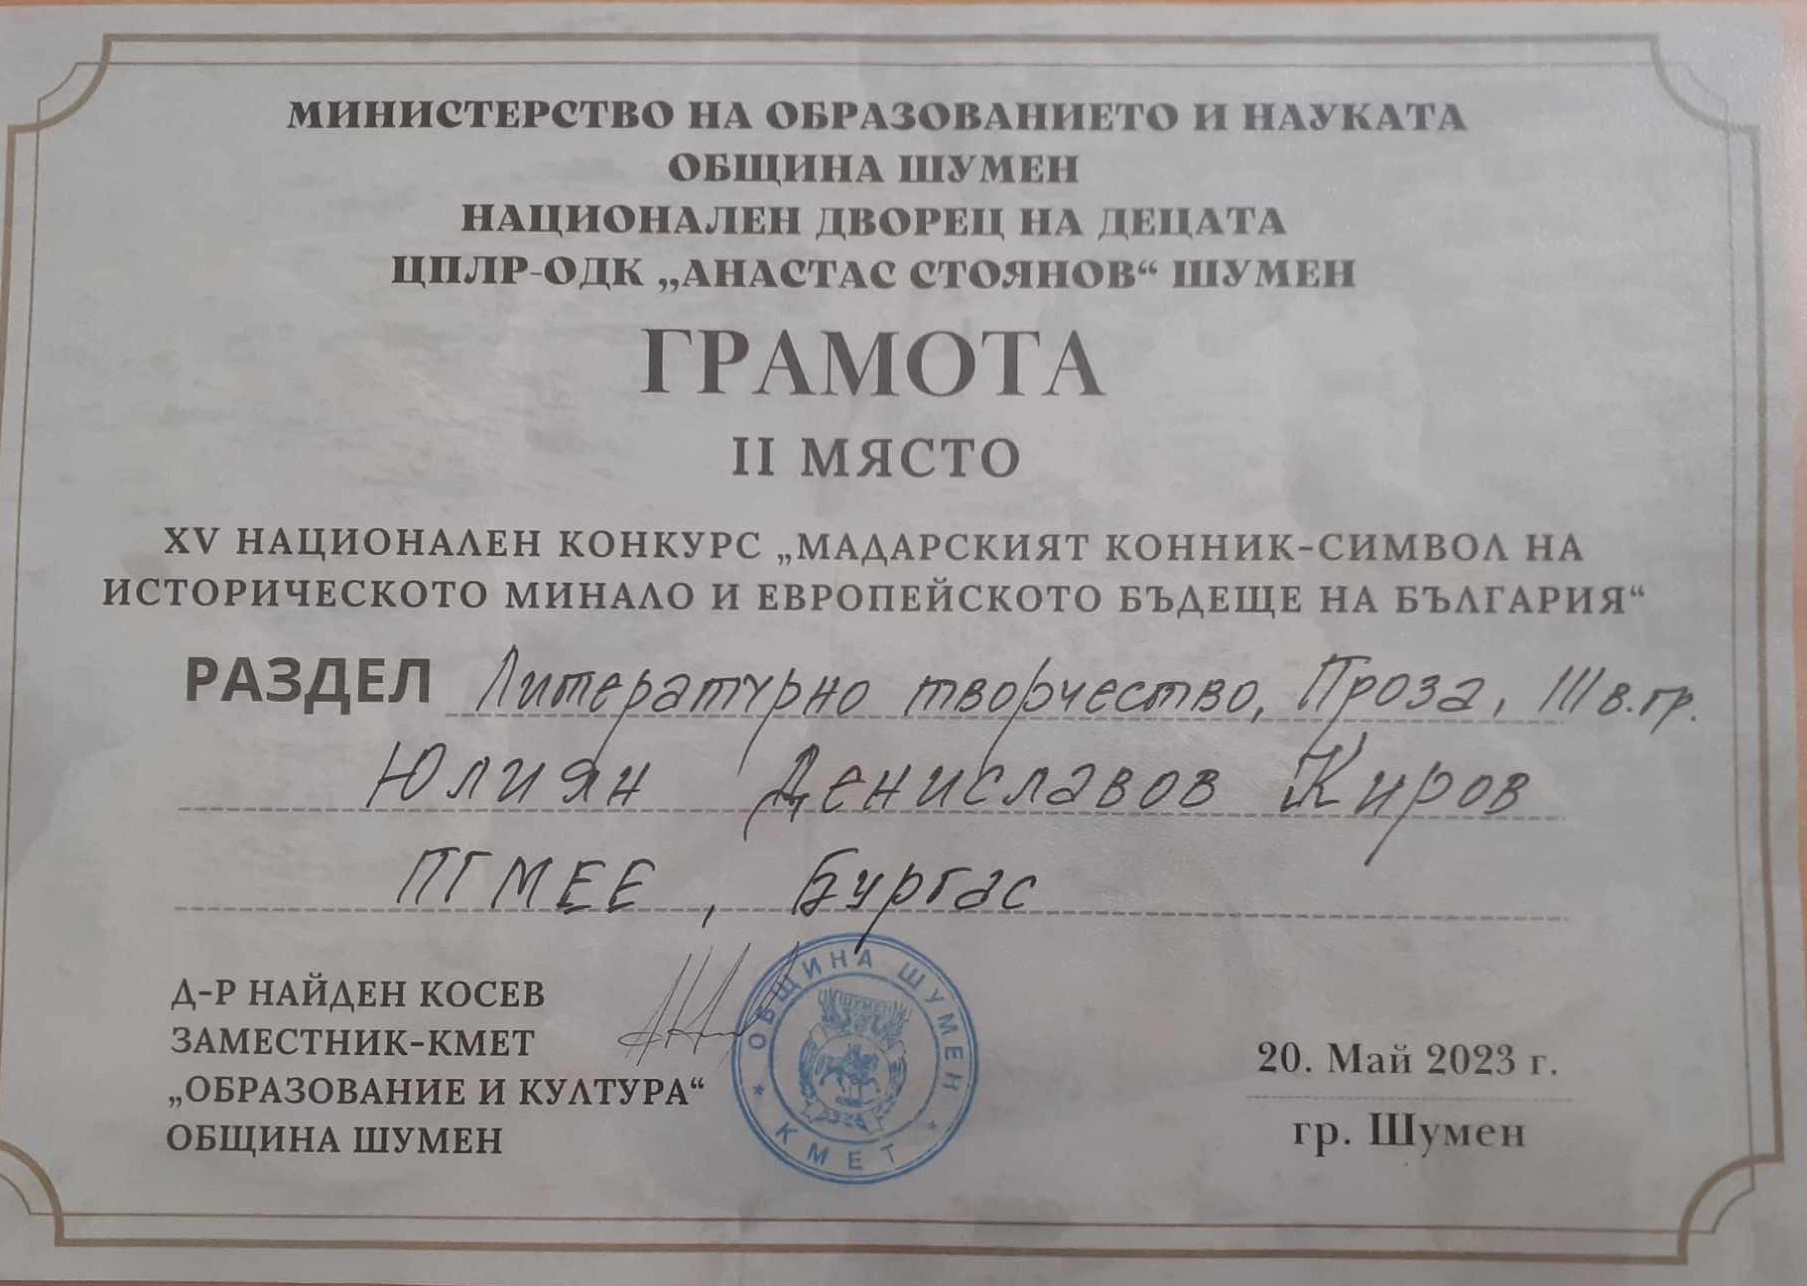 МИНИСТЕРСТВО НА ОБРАЗОВАНИЕТО И НАУКАТА
ОБЩИНА ШУМЕН
НАЦИОНАЛЕН ДВОРЕЦ НА ДЕЦАТА
ЦПЛР-ОДК „АНАСТАС СТОЯНОВ“ ШУМЕН
ГРАМОТА
II МЯСТО
XV НАЦИОНАЛЕН КОНКУРС „МАДАРСКИЯТ КОННИК-СИМВОЛ НА
ИСТОРИЧЕСКОТО МИНАЛО И ЕВРОПЕЙСКОТО БЪДЕЩЕ НА БЪЛГАРИЯ“
РАЗДЕЛ Литературно творчество, Проза, III в.гр.
Юлиян Дениславов Киров
ПГМЕЕ, Бургас
Д-Р НАЙДЕН КОСЕВ
ЗАМЕСТНИК-КМЕТ
„ОБРАЗОВАНИЕ И КУЛТУРА“
ОБЩИНА ШУМЕН
ОБЩИНА ШУМЕН
* КМЕТ *
20. Май 2023 г.
гр. Шумен